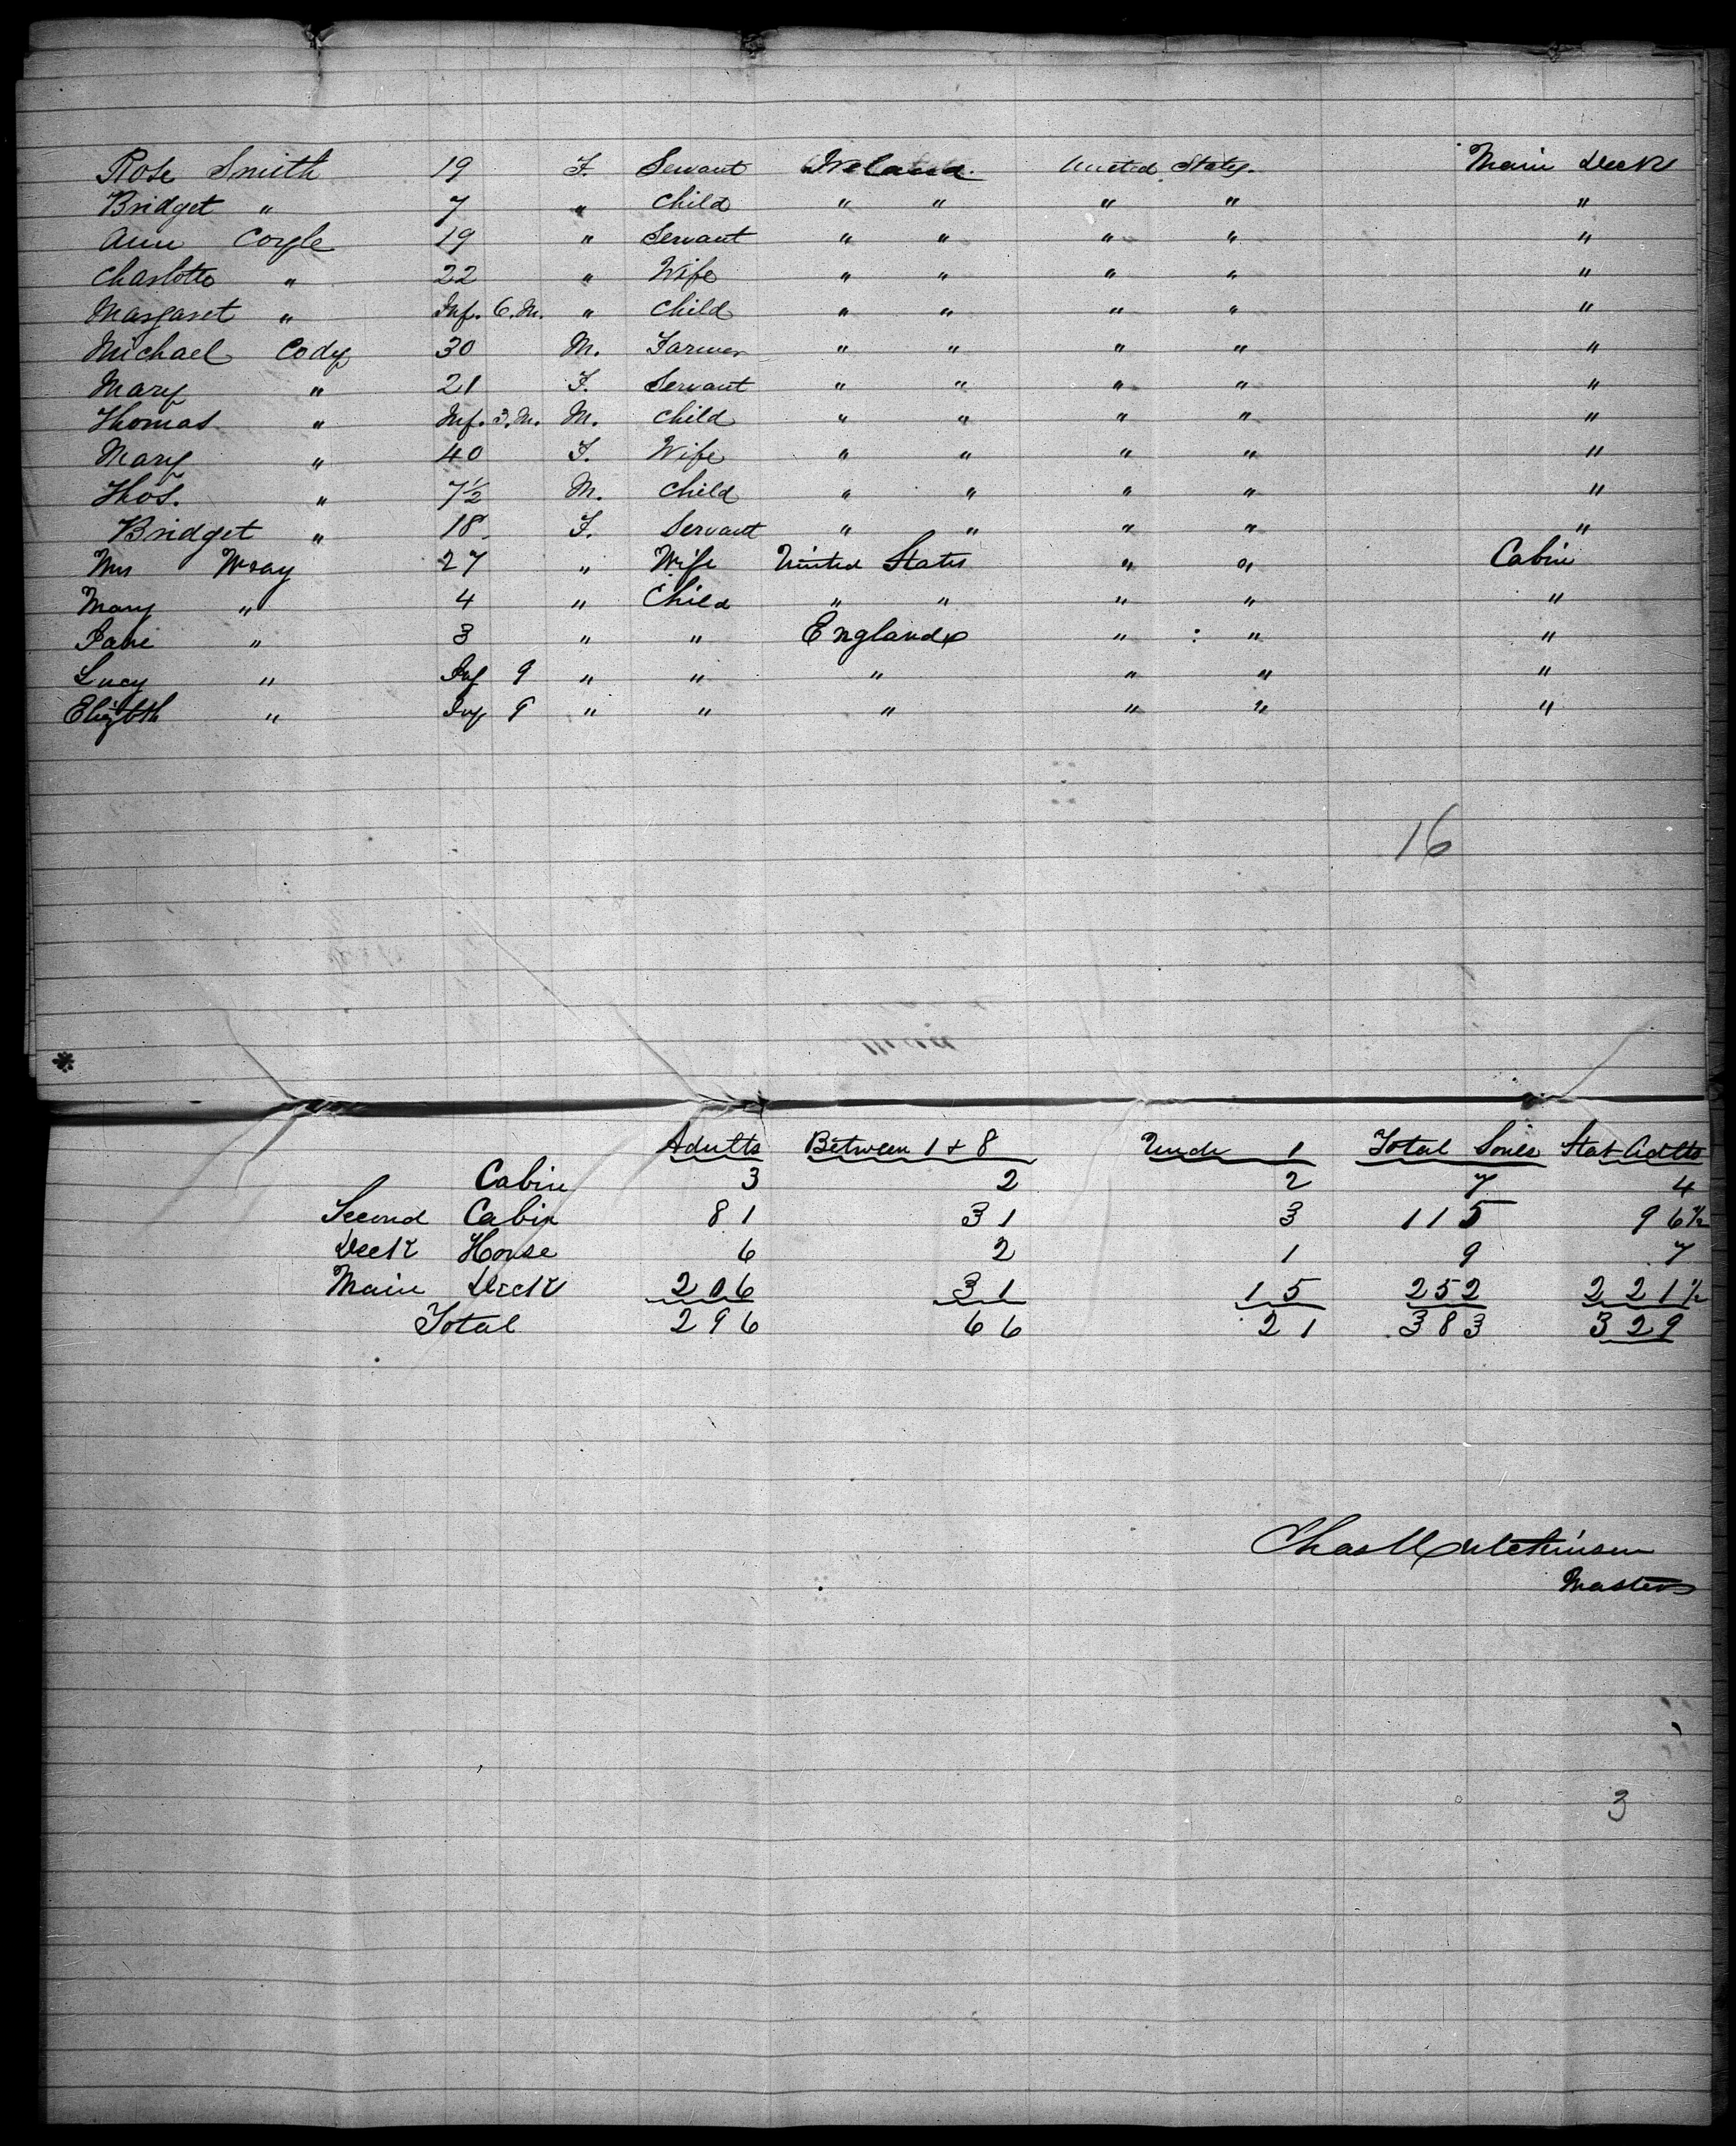 Rose Smith 19 F. Servant Ireland. United States. Main Deck
Bridget " 7 " Child " " " " "
Ann Coyle 19 " Servant " " " " "
Charlotte " 22 " Wife " " " " "
Margaret " Inf. 6. M. " Child " " " " "
Michael Cody 30 M. Farmer " " " " "
Mary " 21 F. Servant " " " " "
Thomas " Inf. 3. M. M. Child " " " " "
Mary " 40 F. Wife " " " " "
Thos. " 7½ M. Child " " " " "
Bridget " 18 F. Servant " " " " "
Mrs Wray 27 " Wife United States " " Cabin
Mary " 4 " Child " " " " "
Jane " 3 " " England " " "
Lucy " Inf 9 " " " " " "
Elizbth " Inf 9 " " " " " "
16
Adults Between 1 & 8 Under 1 Total Souls Stat Adlts
Cabin 3 2 2 7 4
Second Cabin 81 31 3 115 96½
Deck House 6 2 1 9 7
Main Deck 206 31 15 252 221½
Total 296 66 21 383 329
Chas Hutchinson
Master
3